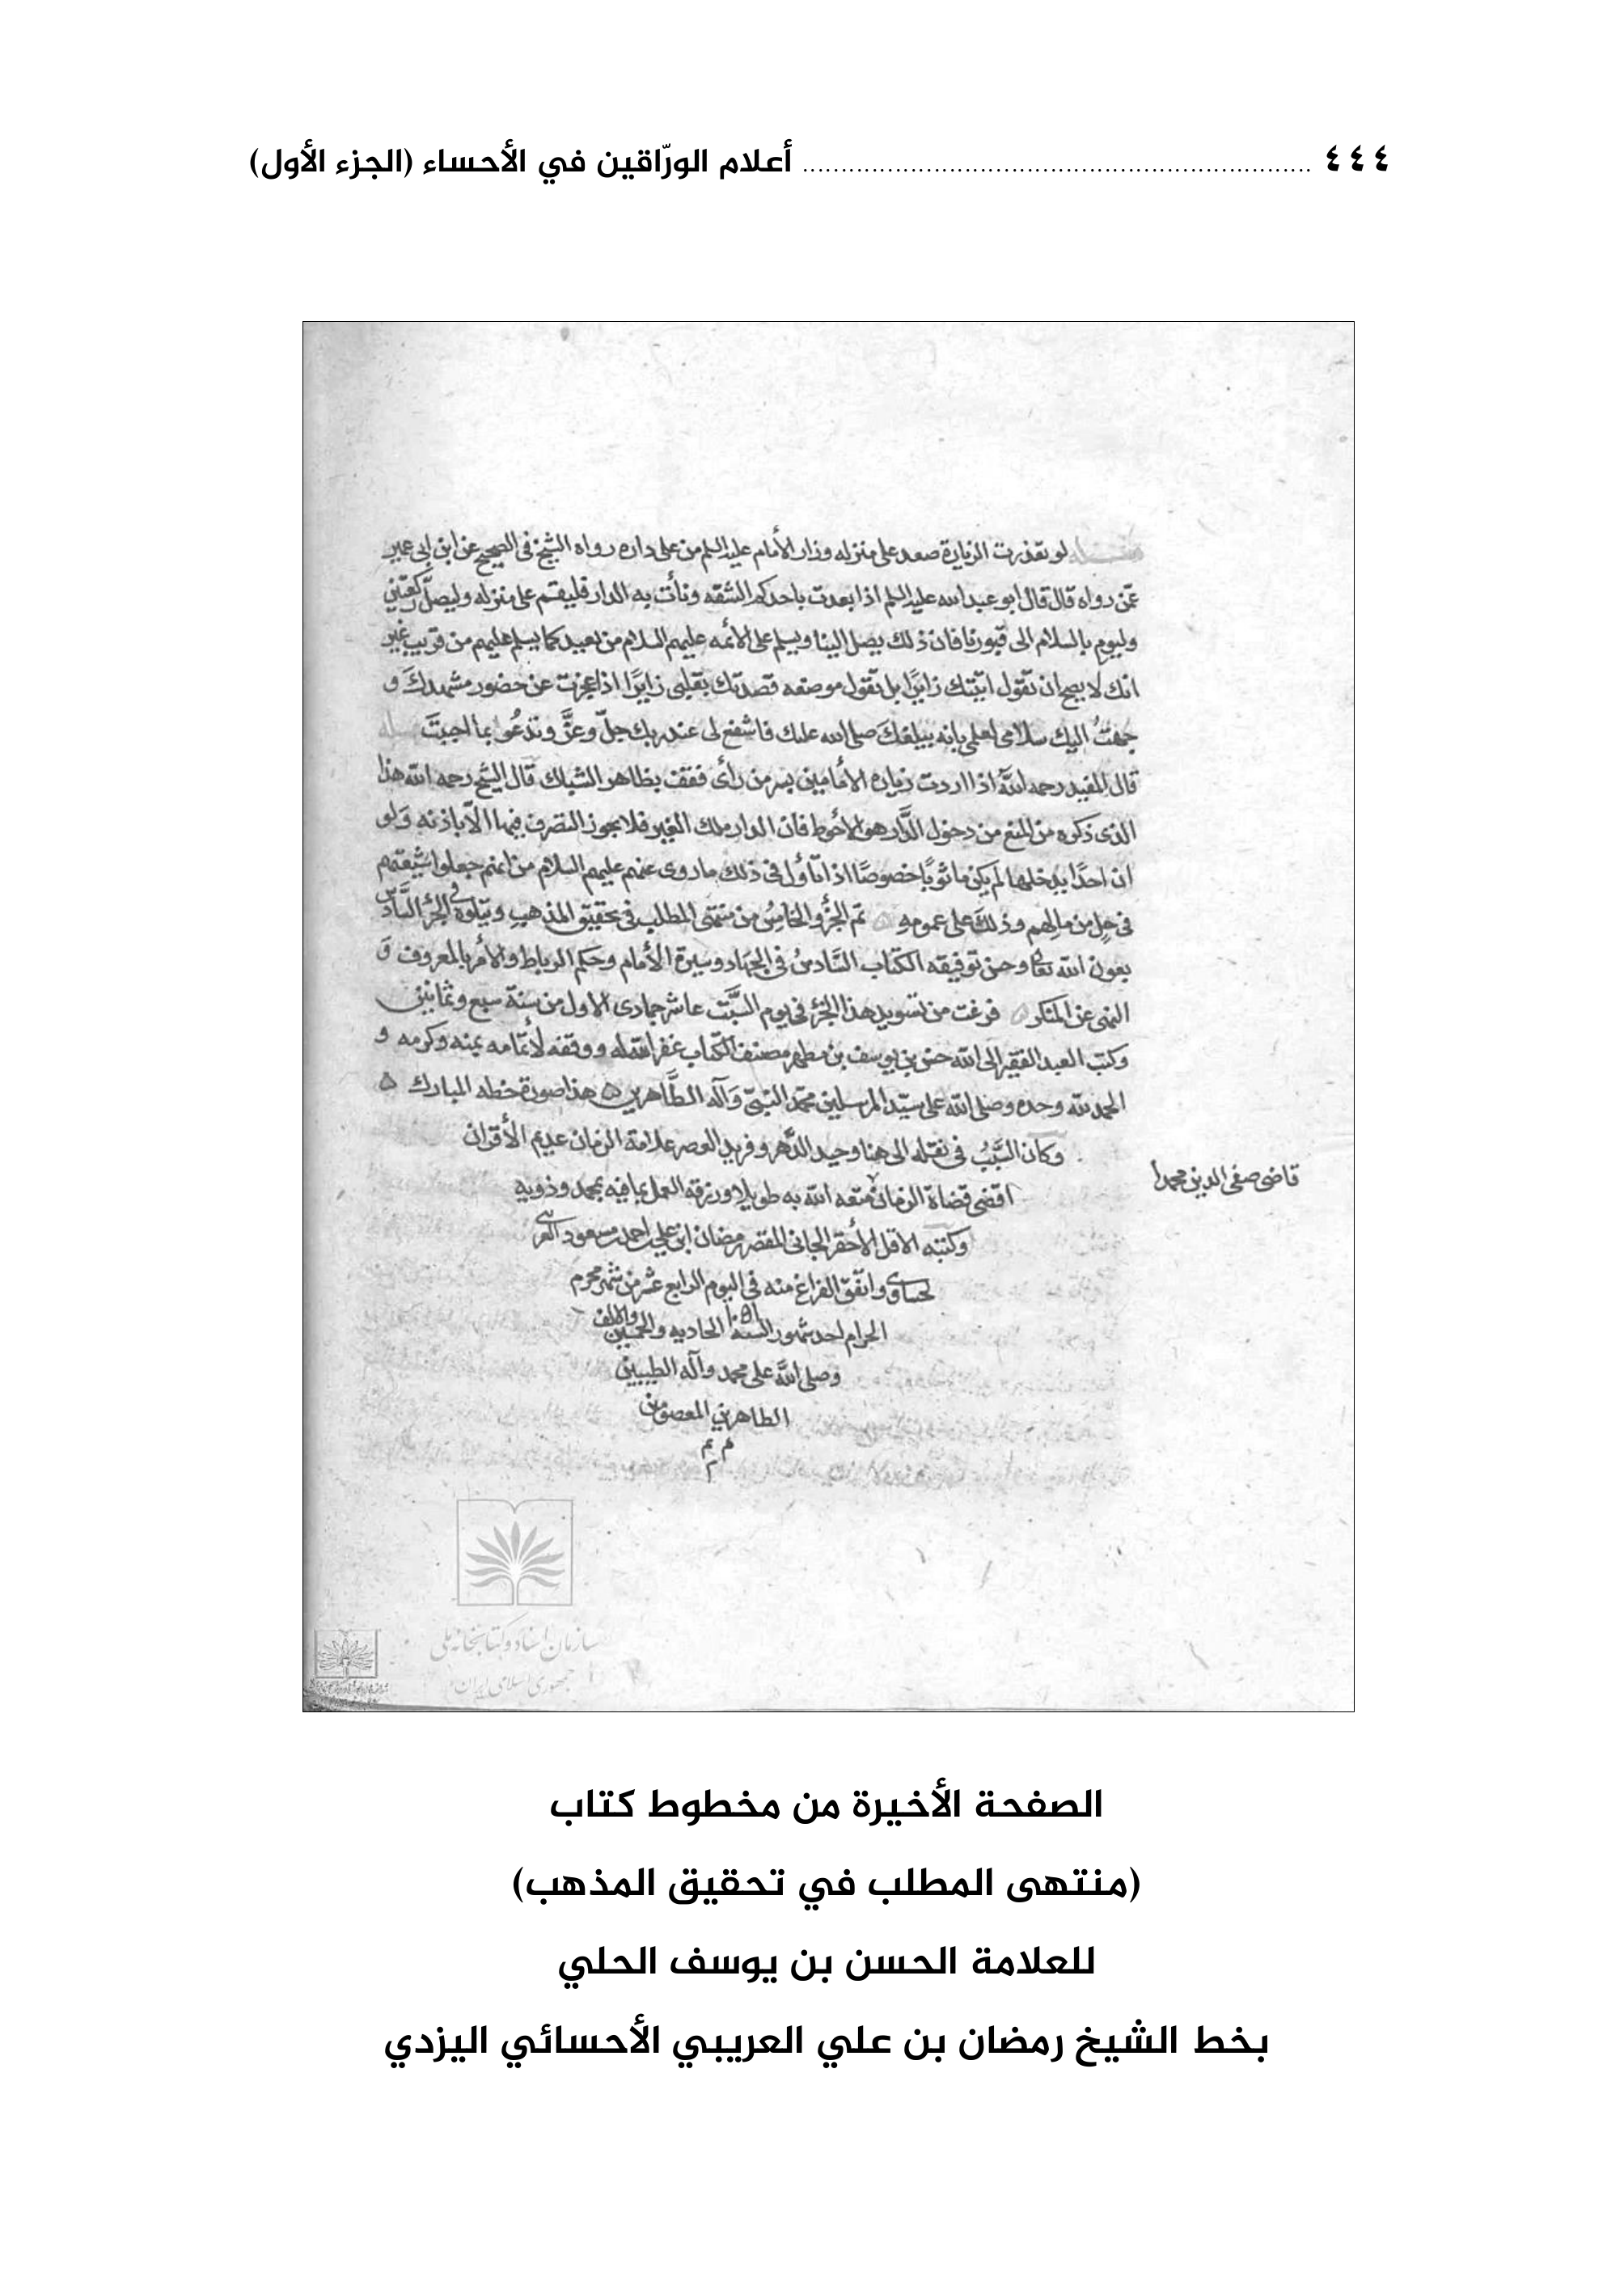 ٤٤٤ ................................................................ أعلام الورّاقين في الأحساء (الجزء الأول)
لو تعذرت الزيارة صعد على منزله وزار الأمام عليه السلم من على داره رواه الشيخ فى الصحيح عن ابن ابى عمير
عمّن رواه قال قال ابو عبد الله عليه السلم اذا بعدت باحدكم الشقه ونأت به الدار فليقم على منزله وليصلّ ركعتين
وليوم بالسلام الى قبورنا فان ذلك يصل الينا ويسلم على الأئمه عليهم السلام من بعيد كما يسلم عليهم من قريب غير
انك لا يصح ان تقول اتيتك زايرًا بل تقول موضعه قصدتك بقلبى زايرًا اذا عجزت عن حضور مشهدك و
جهتُ اليك سلامى لعلمى بانه يبلغك صلى الله عليك فاشفع لى عند ربك جلّ وعزّ وتدعُو بما احببتَ
قال المفيد رحمه الله اذا اردت زيارة الأمامين بسر من رأى فقف بظاهر الشباك قال الشيخ رحمه الله هذا
الذى ذكره من المنع من دخول الدَّار هو الأحوط فان الدار ملك الغير فلا يجوز التصرف فيها الّا باذنه وَلو
ان احدًا يدخلها لم يكن ماثومًا خصوصًا اذا تأول فى ذلك ما روى عنهم عليهم السلام من انهم جعلوا شيعتهم
فى حِل من مالهم وذلك على عمومه تم الجزُؤ الخامسُ من منتهى المطلب فى تحقيق المذهب ويتلوه فى الجزء السَّادس
بعون الله تعالى وحسن توفيقه الكتاب السَّادسُ فى الجهاد وسيرة الأمام وحكم الرباط والأمر بالمعروف وَ
النهى عن المنكر فرغت من تسويد هذا الجزء فى يوم السَّبت عاشر جمادى الاول من سنة سبع وثمانين
وكتب العبد الفقير الى الله حسن بن يوسف بن مطهر مصنف الكتاب غفر الله له ووفقه لأتمامه بمنه وكرمه و
الحمد لله وحده وصلى الله على سيّد المرسلين محمّد النبىّ وَآله الطَّاهرين هذا صورة خطه المبارك
وكان السَّببُ فى نقله الى هنا وحيد الدَّهر وفريد العصر علامة الزمان عديم الأقران
قاضى صفى الدين محمدا
اقضى قضاة الزمان متعه الله به طويلا ورزقه العمل بما فيه بمحمد وذويه
وكتبه الاقل الأحقر الجانى المقصر رمضان ابن على بن احمد بن مسعود
لحساوى واتفق الفراغ منه فى اليوم الرابع عشر من شهر محرم
الحرام احد شهور السنه ١٠٥١ الحاديه والخمسين والالف
وصلى الله على محمد وآله الطيبين
الطاهرين المعصومين
سازمان اسناد و کتابخانه ملی
جمهوری اسلامی ایران
الصفحة الأخيرة من مخطوط كتاب
(منتهى المطلب في تحقيق المذهب)
للعلامة الحسن بن يوسف الحلي
بخط الشيخ رمضان بن علي العريبي الأحسائي اليزدي